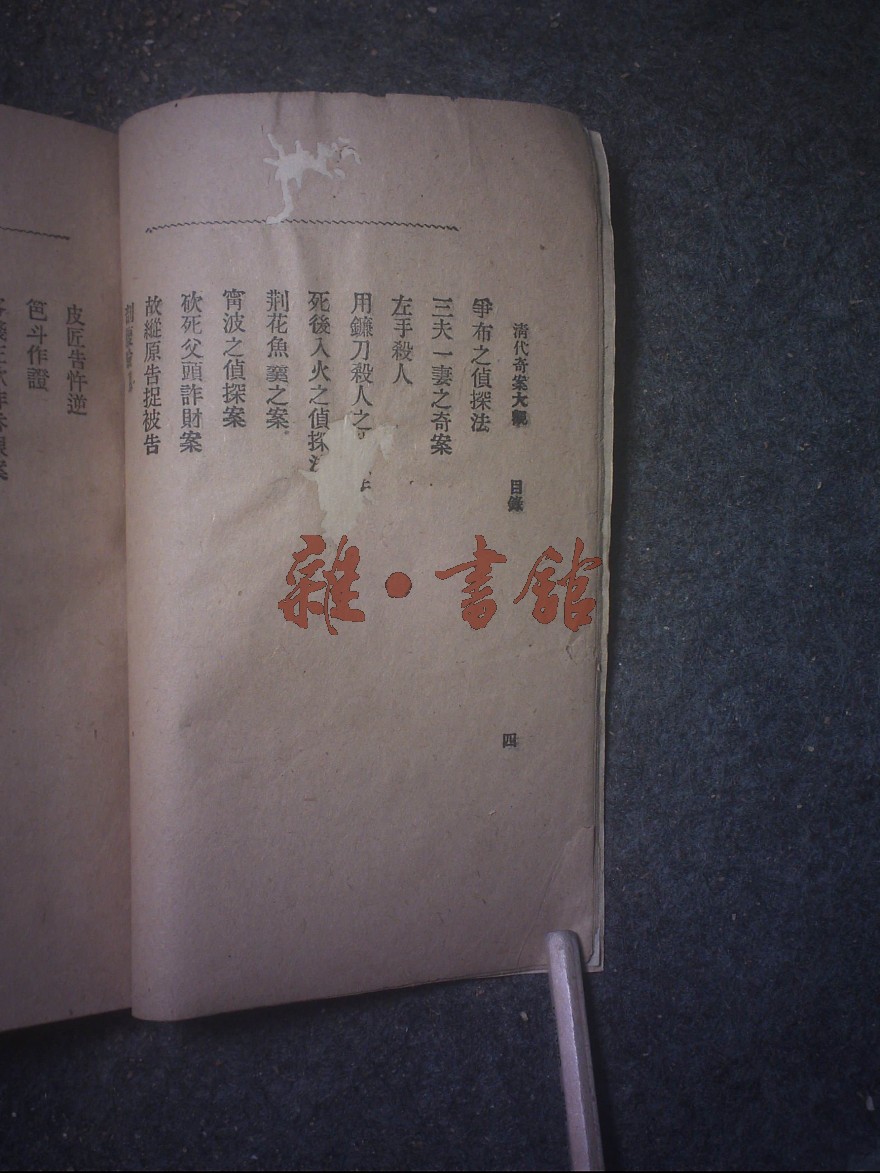 清代奇案大觀 目錄 四
爭布之偵探法
三夫一妻之奇案
左手殺人
用鐮刀殺人之
死後入火之偵探
荆花魚羹之案
甯波之偵探案
砍死父頭詐財案
故縱原告捉被告
皮匠告忤逆
笆斗作證
雜·書館